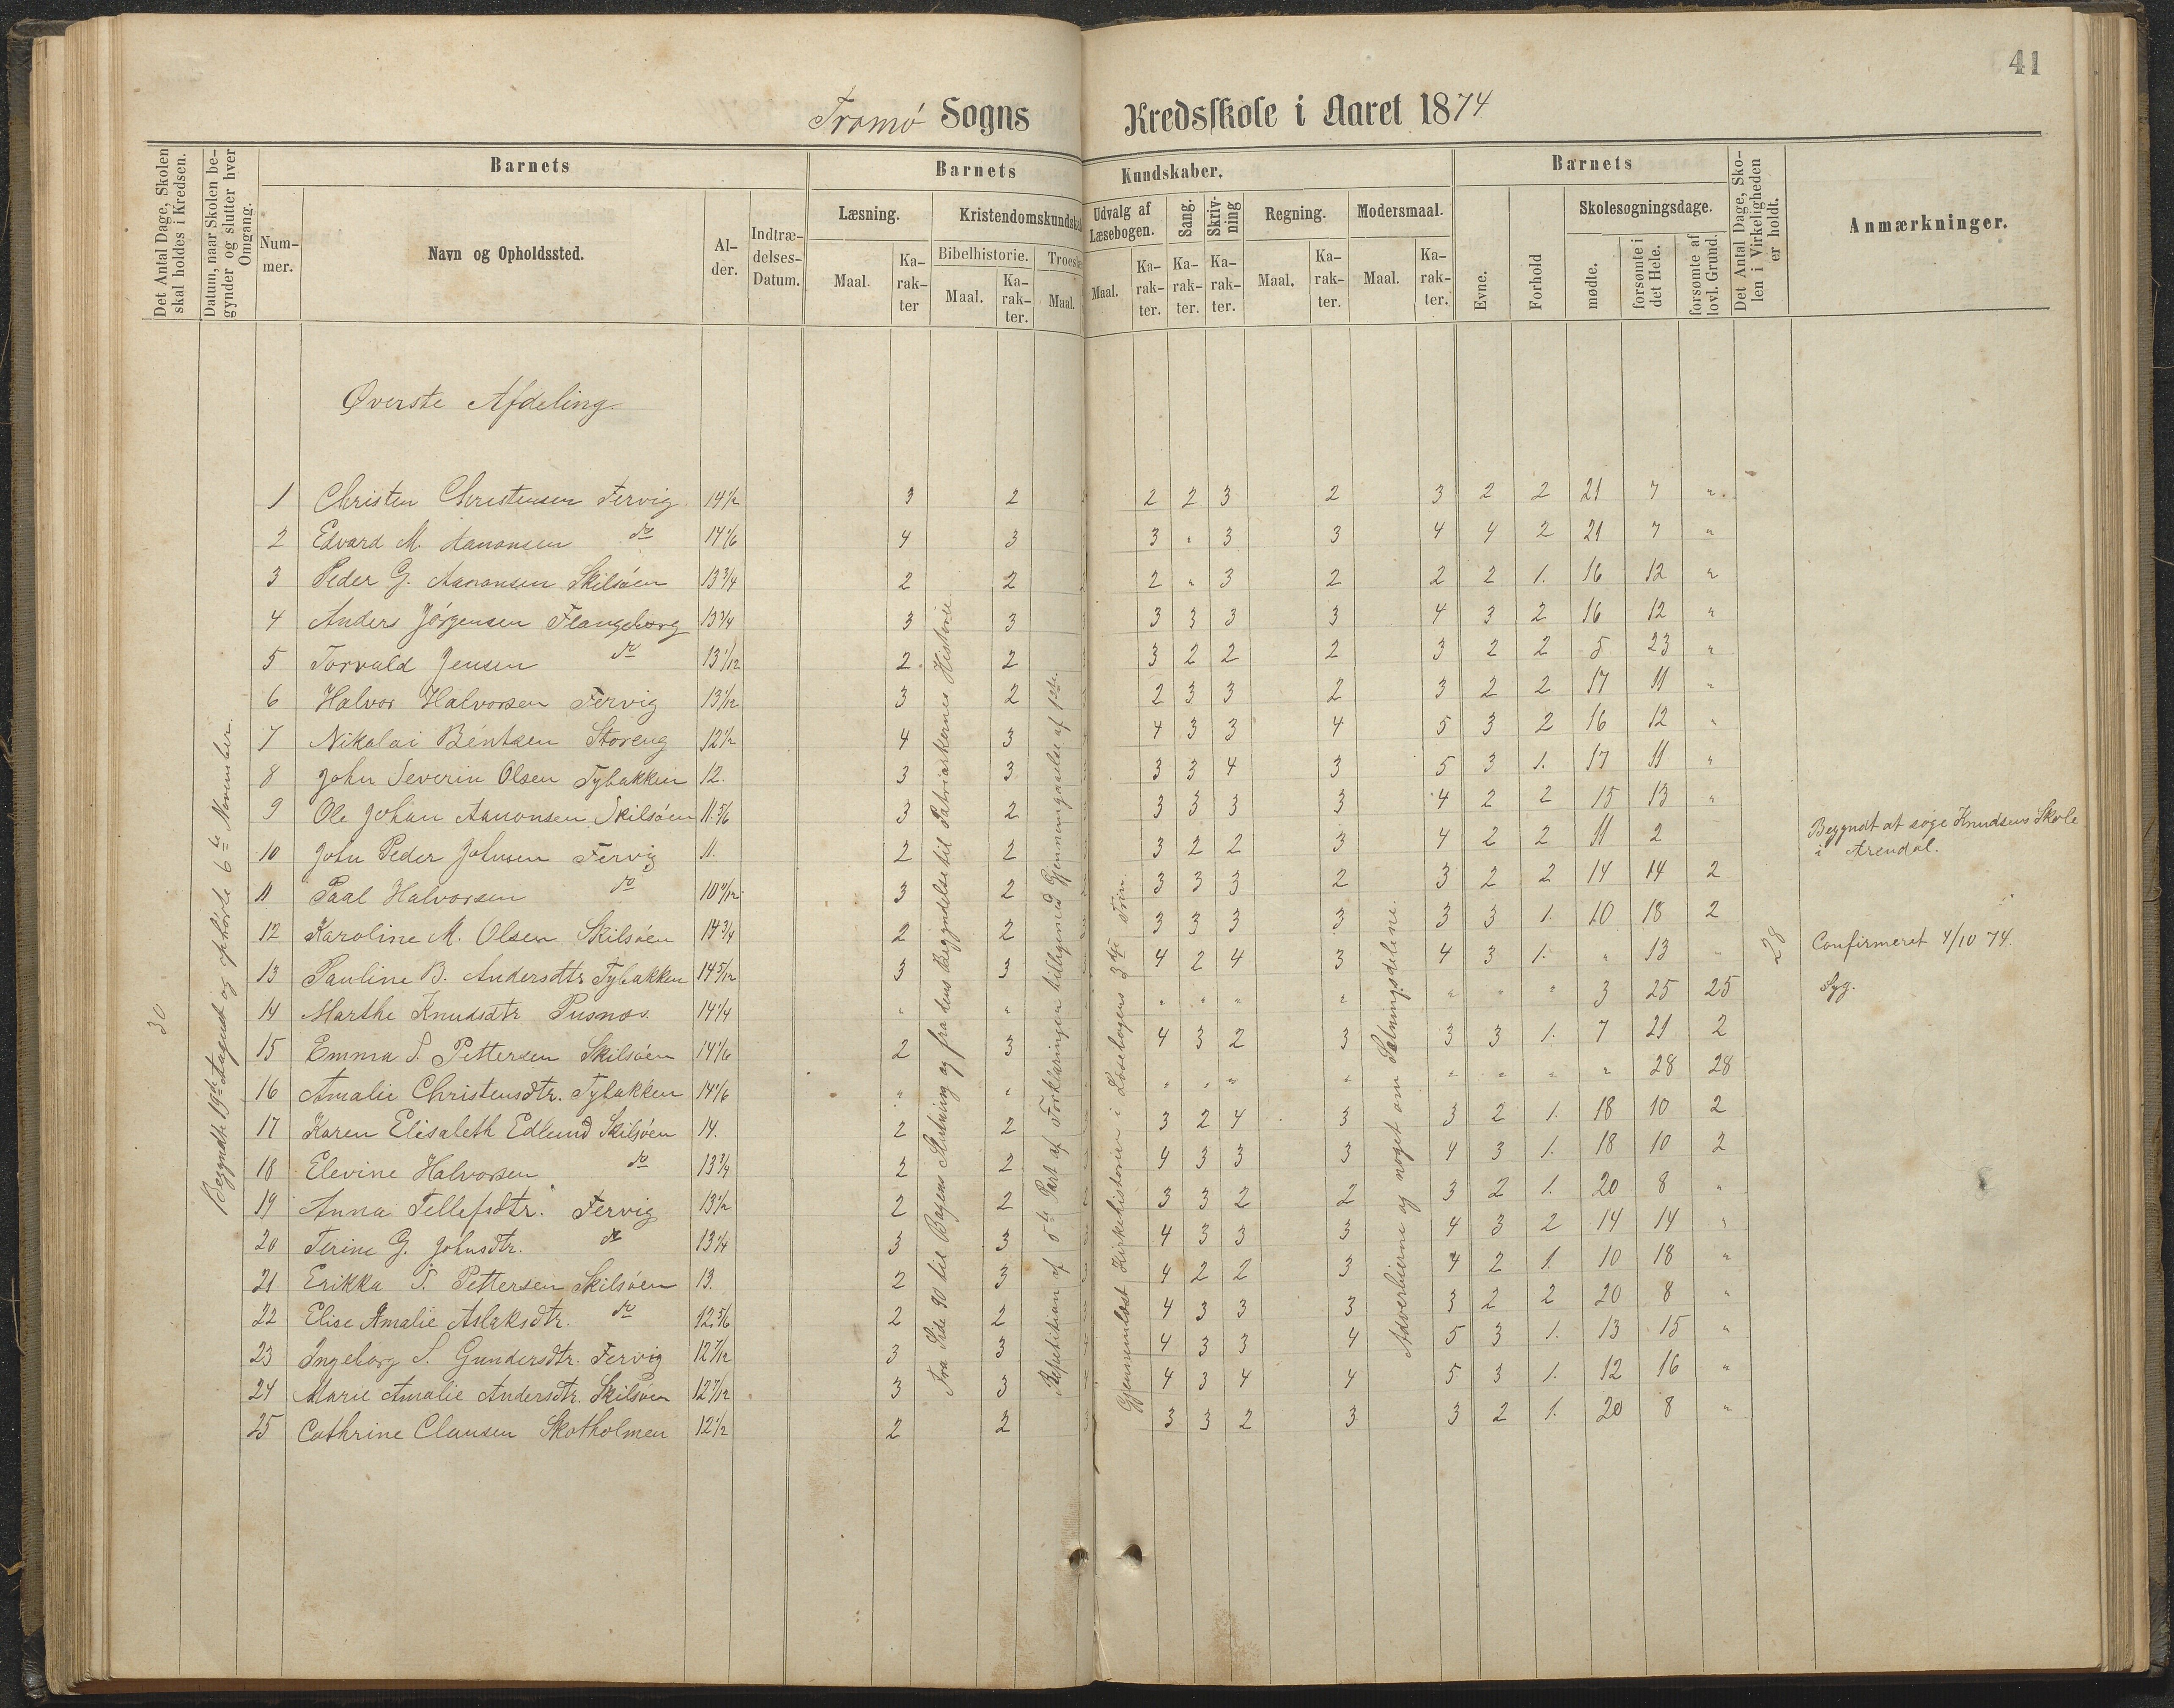 41
Tromø Sogns Kredsskole i Aaret 1874
Det Antal Dage, Skolen skal holdes i Kredsen.
Datum, naar Skolen begynder og slutter hver Omgang.
Barnets
Barnets Kundskaber.
Barnets
Det Antal Dage, Skolen i Virkeligheden er holdt.
Anmærkninger.
Nummer.
Navn og Opholdssted.
Alder.
Indtrædelses-Datum.
Læsning.
Kristendomskundska
Udvalg af Læsebogen.
Sang.
Skrivning
Regning.
Modersmaal.
Evne.
Forhold
Skolesøgningsdage.
Bibelhistorie.
Troes
Maal.
Karakter
Maal.
Karakter.
Maal.
Maal.
Karakter.
Karakter.
Karakter.
Maal.
Karakter.
Maal.
Karakter.
mødte.
forsømte i det Hele.
forsømte af lovl. Grund.
Øverste Afdeling.
30
Begyndte 19de August og ophørte 6te November.
Fra Side 90 til Bogens Slutning og fra dens Begyndelse til Patriarkernes Historie.
Repetition af 5te Part af Forklaringen tilligemed Gjennemgaaelse af 1ste.
Gjennemlæst Kirkehistorien i Læsebogens 3die Trin.
Adverbierne og noget om Sætningsdelene.
28
1 Christen Christensen Fervig. 14 1/2 3 2 2 2 3 2 3 2 2 21 7 "
2 Edvard M. Aanonsen do 14 1/6 4 3 3 " 3 3 4 4 2 21 7 "
3 Peder G. Aanonsen Skilsøen 13 3/4 2 2 2 " 3 2 2 2 1. 16 12 "
4 Anders Jørgensen Flangeborg 13 1/4 3 3 3 3 3 3 4 3 2 16 12 "
5 Torvald Jensen do 13 1/12 2 2 3 2 2 2 3 2 2 5 23 "
6 Halvor Halvorsen Fervig 13 1/12 3 2 2 3 3 2 3 2 2 17 11 "
7 Nikolai Bentsen Storeng 12 1/2 4 3 4 3 3 4 5 3 2 16 12 "
8 John Severin Olsen Tybakken 12. 3 3 3 3 4 3 5 3 1. 17 11 "
9 Ole Johan Aanonsen Skilsøen 11 5/6 3 2 3 3 3 3 4 2 2 15 13 "
10 John Peder Johnsen Fervig 11. 2 2 3 2 2 3 4 2 2 11 2 Begyndt at søge Knudsens Skole
i Arendal.
11 Paal Halvorsen do 10 11/12 3 2 3 3 3 2 3 2 2 14 14 2
12 Karoline M. Olsen Skilsøen 14 3/4 2 2 3 3 3 3 3 3 1. 10 18 2
13 Pauline B. Andersdtr Tybakken 14 5/12 3 3 4 2 4 3 4 3 1. " 13 " Confirmeret 4/10 74.
14 Marthe Knudsdtr Pusnes. 14 1/4 " " " " " " " " " 3 25 25 Syg.
15 Emma S. Pettersen Skilsøen 14 1/6 2 3 4 3 2 3 3 3 1. 7 21 2
16 Amalie Christensdtr. Tybakken 14 1/6 " " " " " " " " " " 28 28
17 Karen Elisabeth Edlund Skilsøen 14. 2 2 3 2 4 3 3 2 1. 18 10 2
18 Elevine Halvorsen do 13 3/4 2 2 4 3 3 3 4 3 1. 18 10 2
19 Anna Tellefsdtr. Fervig 13 1/2 2 2 3 3 2 2 3 2 1. 20 8 "
20 Terine G. Johnsdtr. do 13 1/4 3 3 4 3 3 3 4 3 2 14 14 "
21 Erikka S. Pettersen Skilsøen 13. 2 3 4 2 2 3 4 2 1. 10 18 "
22 Elise Amalie Aslaksdtr. do 12 5/6 2 2 4 3 3 3 3 2 2 20 8 "
23 Ingeborg S. Gundersdtr. Fervig 12 7/12 3 3 4 3 3 4 5 3 1. 13 15 "
24 Marie Amalie Andersdtr. Skilsøen 12 7/12 3 3 4 3 4 4 5 3 1. 12 16 "
25 Cathrine Clausen Skotholmen 12 1/2 2 2 3 3 2 3 3 2 1. 20 8 "